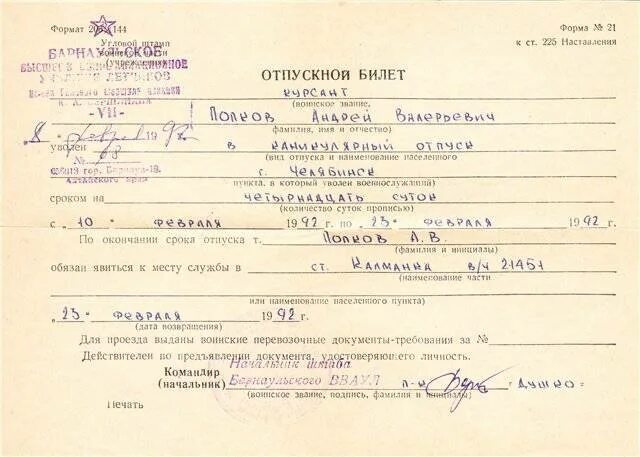 Формат 203×144
Форма № 21
к ст. 225 Наставления
Угловой штамп
воинской части
(учреждения)
БАРНАУЛЬСКОЕ
ВЫСШЕЕ ВОЕННОЕ АВИАЦИОННОЕ
УЧИЛИЩЕ ЛЕТЧИКОВ
имени Главного маршала авиации
К. А. ВЕРШИНИНА
-VII-
ОТПУСКНОЙ БИЛЕТ
КУРСАНТ
(воинское звание,
ПОПКОВ АНДРЕЙ ВАЛЕРЬЕВИЧ
фамилия, имя и отчество)
"8" февраля 1992 г.
уволен в КАНИКУЛЯРНЫЙ ОТПУСК
№ 68
(вид отпуска и наименование населенного
656013 гор. Барнаул-18.
Алтайского края
г. ЧЕЛЯБИНСК
пункта, в который уволен военнослужащий)
сроком на ЧЕТЫРНАДЦАТЬ СУТОК
(количество суток прописью)
с „10" ФЕВРАЛЯ 1992 г. по „23" ФЕВРАЛЯ 1992 г.
По окончании срока отпуска т. ПОПКОВ А.В.
(фамилия и инициалы)
обязан явиться к месту службы в СТ. КАЛМАНКА В/Ч 21451
(наименование части
или наименование населенного пункта)
„23" ФЕВРАЛЯ 1992 г.
(дата возвращения)
Для проезда выданы воинские перевозочные документы-требования за №
Действителен по предъявлении документа, удостоверяющего личность.
Командир
(начальник)
Начальник штаба
Барнаульского ВВАУЛ
п-к
(воинское звание, подпись, фамилия и инициалы)
Печать